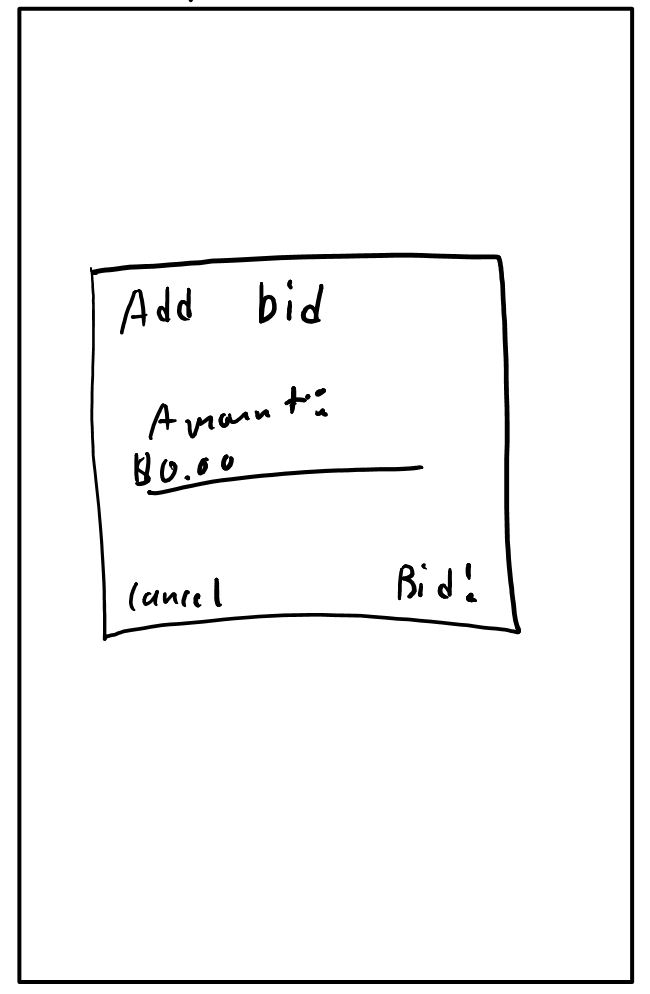 Add bid
Amount:
₿0.00
Cancel Bid!